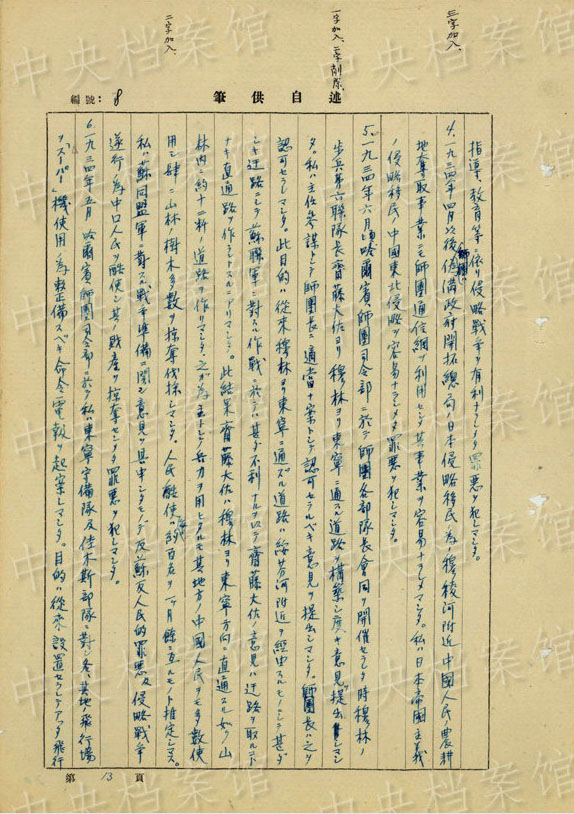 三字加入、
一字加入、一字削除、
二字加入、
述自供筆
編號：8
指導、教育等ニ依リ侵略戦争ヲ有利ナラシメタ罪悪ヲ犯シマシタ。
4.一九三四年四月以後偽満政府開拓総局ノ日本侵略移民ノ為ノ穆稜河附近中国人民ノ農耕
地奪取事業ニモ師団通信網ヲ利用セシメ其事業ヲ容易ナラシメマシタ。私ハ日本帝国主義
ノ侵略移民、中国東北侵略ヲ容易ナラシメタ罪悪ヲ犯シマシタ。
5.一九三四年六月頃哈爾賓師団司令部ニ於テ師団各部隊長会同ヲ開催セラレタ時穆林ノ
歩兵第六聯隊長齋藤大佐ヨリ穆林ヨリ東寧ニ通スル道路ヲ構築シ度キ意見ヲ提出シマシ
タ。私ハ主任参謀トシテ師団長ニ適当ナ案トシテ認可セラルベキ意見ヲ提出シマシタ。師団長ハ之ヲ
認可セラレマシタ。此目的ハ従来穆林ヨリ東寧ニ通ズル道路ハ綏芬河附近ヲ経由スルモノニシテ甚ダ
シキ迂路ニシテ蘇聯軍ニ対スル作戦ニ於テハ甚ダ不利ナルヲ以テ齋藤大佐ノ意見ハ迂路ヲ取ルコト
ナキ直通路ヲ作ラントスルニアリマシタ。此結果齋藤大佐ハ穆林ヨリ東寧方向ニ直ニ通スル如ク山
林内ニ約十二粁ノ道路ヲ作リマシタ。之ガ為主トシテ兵力ヲ用ヒタルモ其地方ノ中国人民ヲモ多数使
用シ肆ニ山林ノ樹木多数ヲ掠奪伐採シマシタ。人民酷使ハ毎日約百五、一ヶ月餘ニ亙ルモノト推定シマス。
私ハ蘇同盟軍ニ対スル戦争準備ニ関シ意見ヲ具申シタモノデ反蘇反人民的罪悪及侵略戦争
遂行ノ為中国人民ヲ酷使シ其ノ財産ヲ掠奪セシメタ罪悪ヲ犯シマシタ。
6.一九三四年五月哈爾賓師団司令部ニ於テ私ハ東寧守備隊及佳木斯部隊ニ対シ各、其地ノ飛行場
ヲ「スーパー」機使用ノ為整備スベキ命令電報ヲ起案シマシタ。目的ハ従来設置セラレテアツタ飛行
第13頁
中央档案馆